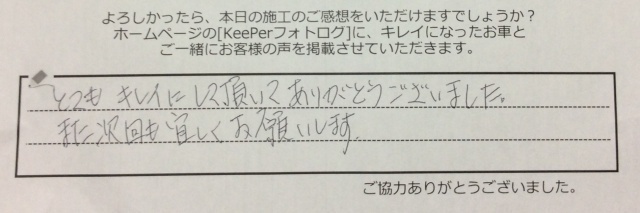 よろしかったら、本日の施工のご感想をいただけますでしょうか？
ホームページの[KeePerフォトログ]に、キレイになったお車と
ご一緒にお客様の声を掲載させていただきます。
とてもキレイにして頂いてありがとうございました。
また次回も宜しくお願いします。
ご協力ありがとうございました。